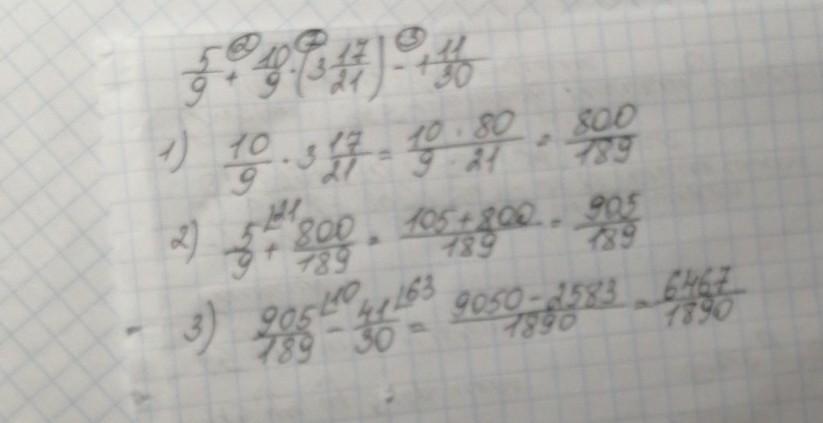 5/9 + 10/9 · (3 17/21) - 1 11/30
1) 10/9 · 3 17/21 = (10 · 80)/(9 · 21) = 800/189
2) 5/9 ⌊21 + 800/189 = (105+800)/189 = 905/189
3) 905/189 ⌊10 - 41/30 ⌊63 = (9050-2583)/1890 = 6467/1890